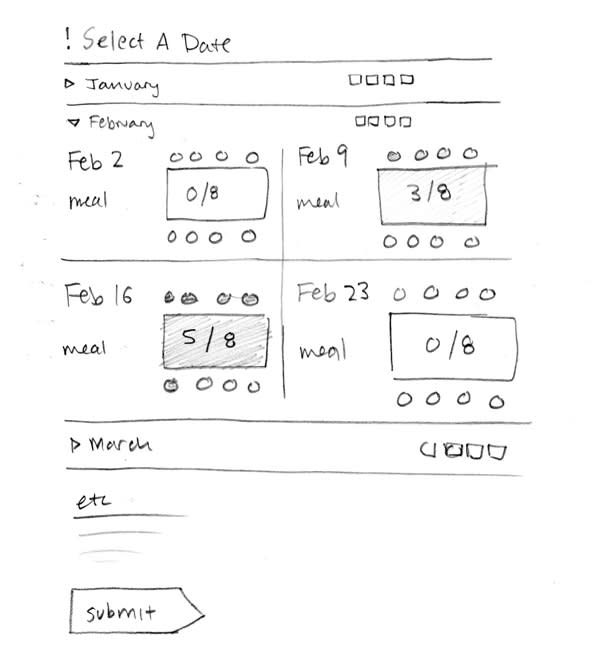 ! Select A Date
January
February
Feb 2
meal
0/8
Feb 9
meal
3/8
Feb 16
meal
5/8
Feb 23
meal
0/8
March
etc
submit